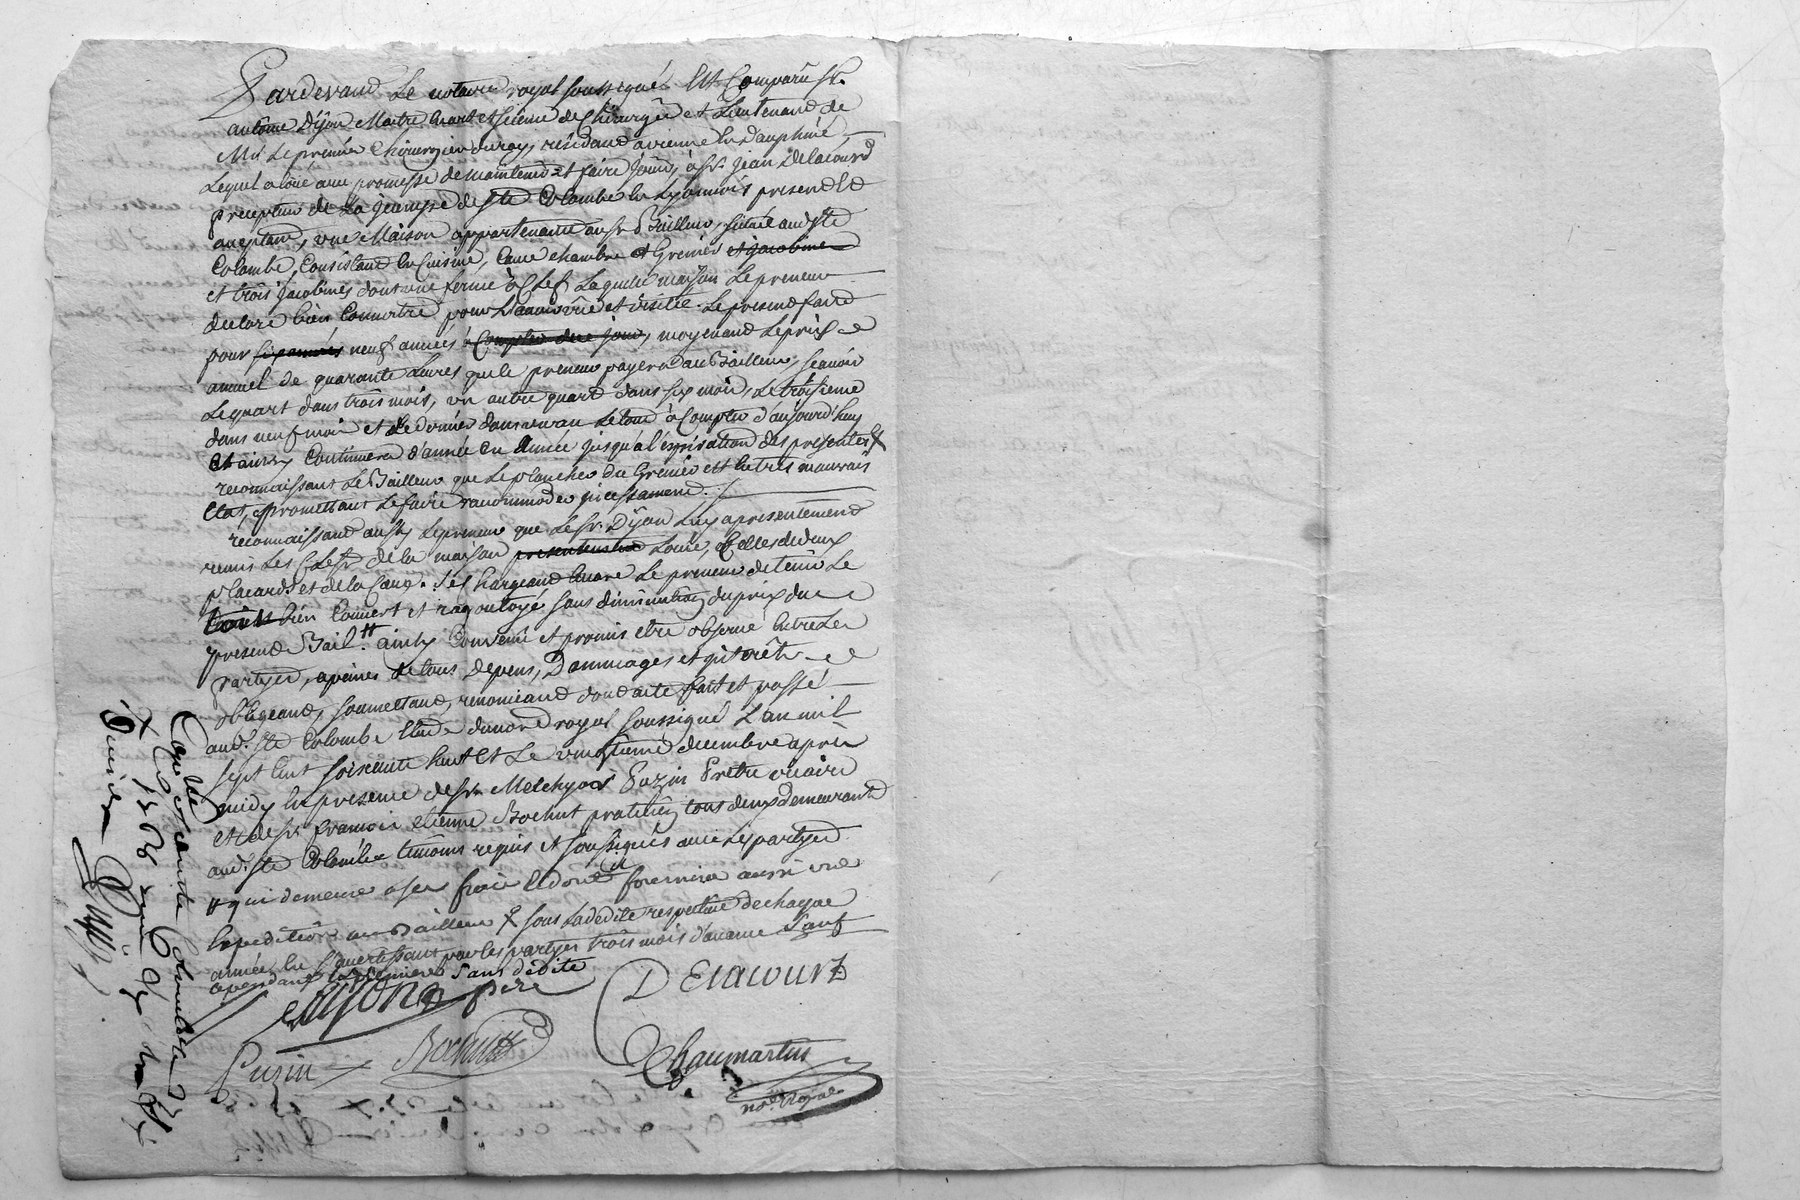 Pardevant Le notaire royal soussigné Est Comparu Sr.
antoine Dijon Maitre en art et Science de Chirurgie et Lieutenant de
Mr Le premier Chirurgien du roy, résidant a vienne en dauphiné
Lequel a loué avec promesse de maintenir et faire jouir, à Sr. jean Delacourt
precepteur de La jeunesse de Ste Colombe en Lyonnois present et
aceptant, une Maison appartenante au Sr Bailleur, située aud Ste
Colombe, Consistant en Cuisine, Cave chambre et Grenier et jacobines
et trois jacobines dont une ferme à Clef Laquelle maison Le preneur
declare bien Connoitre pour L'avoir vüe et visitée. Le present fait
pour six années neuf années à Compter de ce jour, moyenant Le prix
annuel de quarante Livres que le preneur payera au Bailleur, scavoir
Le quart dans trois mois, un autre quart dans six mois, Le troisieme
dans neuf mois et Le dernier dans un an Le tout à Compter d'aujourd'huy
Et ainsy Continuera d'année en année jusqu'a l'expiration des presentes
reconnaissant Le Bailleur que Le plancher du Grenier est en tres mauvais
Etat, promettant Le faire racommoder incessament.
reconnaissant aussy Le preneur que Le Sr. Dijon Luy a presentement
remis Les Clefs de la maison presentement Louée, et Celles de deux
placards et de la Cave. Se Chargeant encore Le preneur de tenir Le
toit bien Couvert et ragoutoyé sans diminution du prix du
present Bail. # ainsy Convenu et promis etre observé entre Les
partyes, a peines de tous depens, Dommages et interêts
obligeant, soumettant, renonceant dont acte fait et passé
aud. Ste Colombe Etude du notre royal soussigné L'an mil
sept cent soixante huit et Le vingtieme decembre après
midy en presence de Sr. Melchyor Puzin Prêtre vicaire
et de Sr. françois etienne Bochut praticien tous deux demeurants
aud. Ste Colombe temoins requis et soussignés avec Les partyes
# qui demeure a ses frais et dont il fournira aussi une
Expedition au Bailleur X sous La dedite respective de chaque
année en s'avertissant par les partyes trois mois d'avance sauf
dijon père
DElACOURt
Puzin
Bochut
Chaumartin
nore Royal